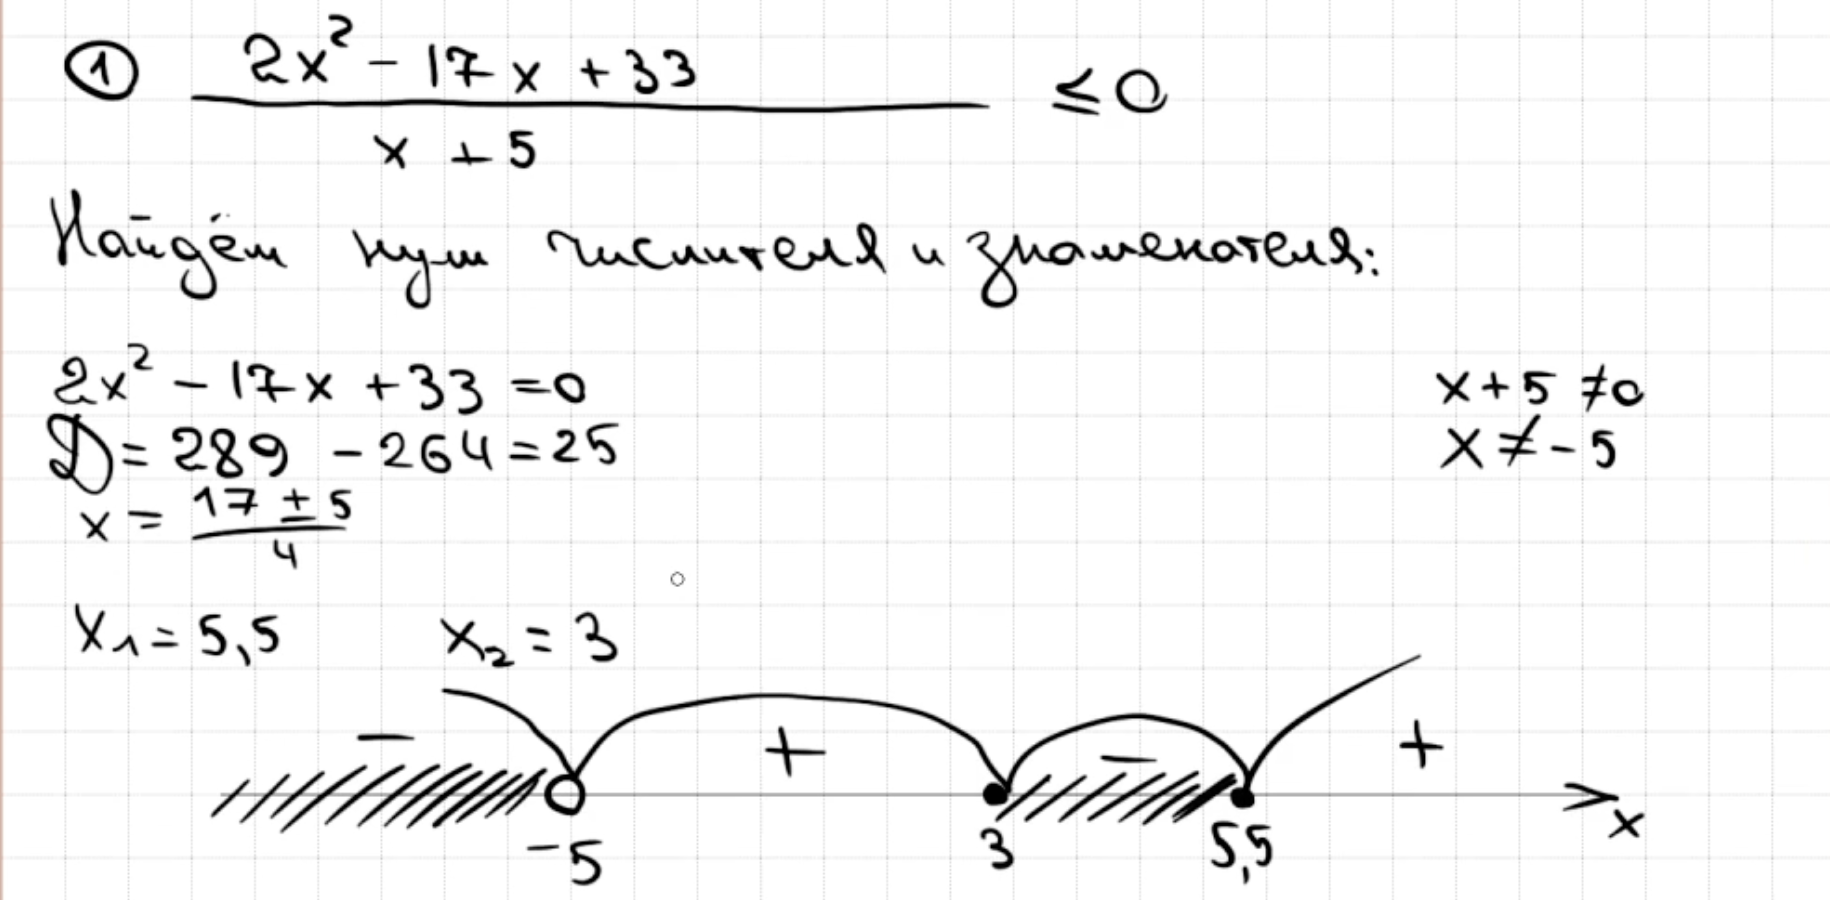 ① (2x² - 17x + 33) / (x + 5) ≤ 0
Найдём нули числителя и знаменателя:
2x² - 17x + 33 = 0
D = 289 - 264 = 25
x = (17 ± 5) / 4
x₁ = 5,5 x₂ = 3
x + 5 ≠ 0
x ≠ -5
- + - +
-5 3 5,5 x